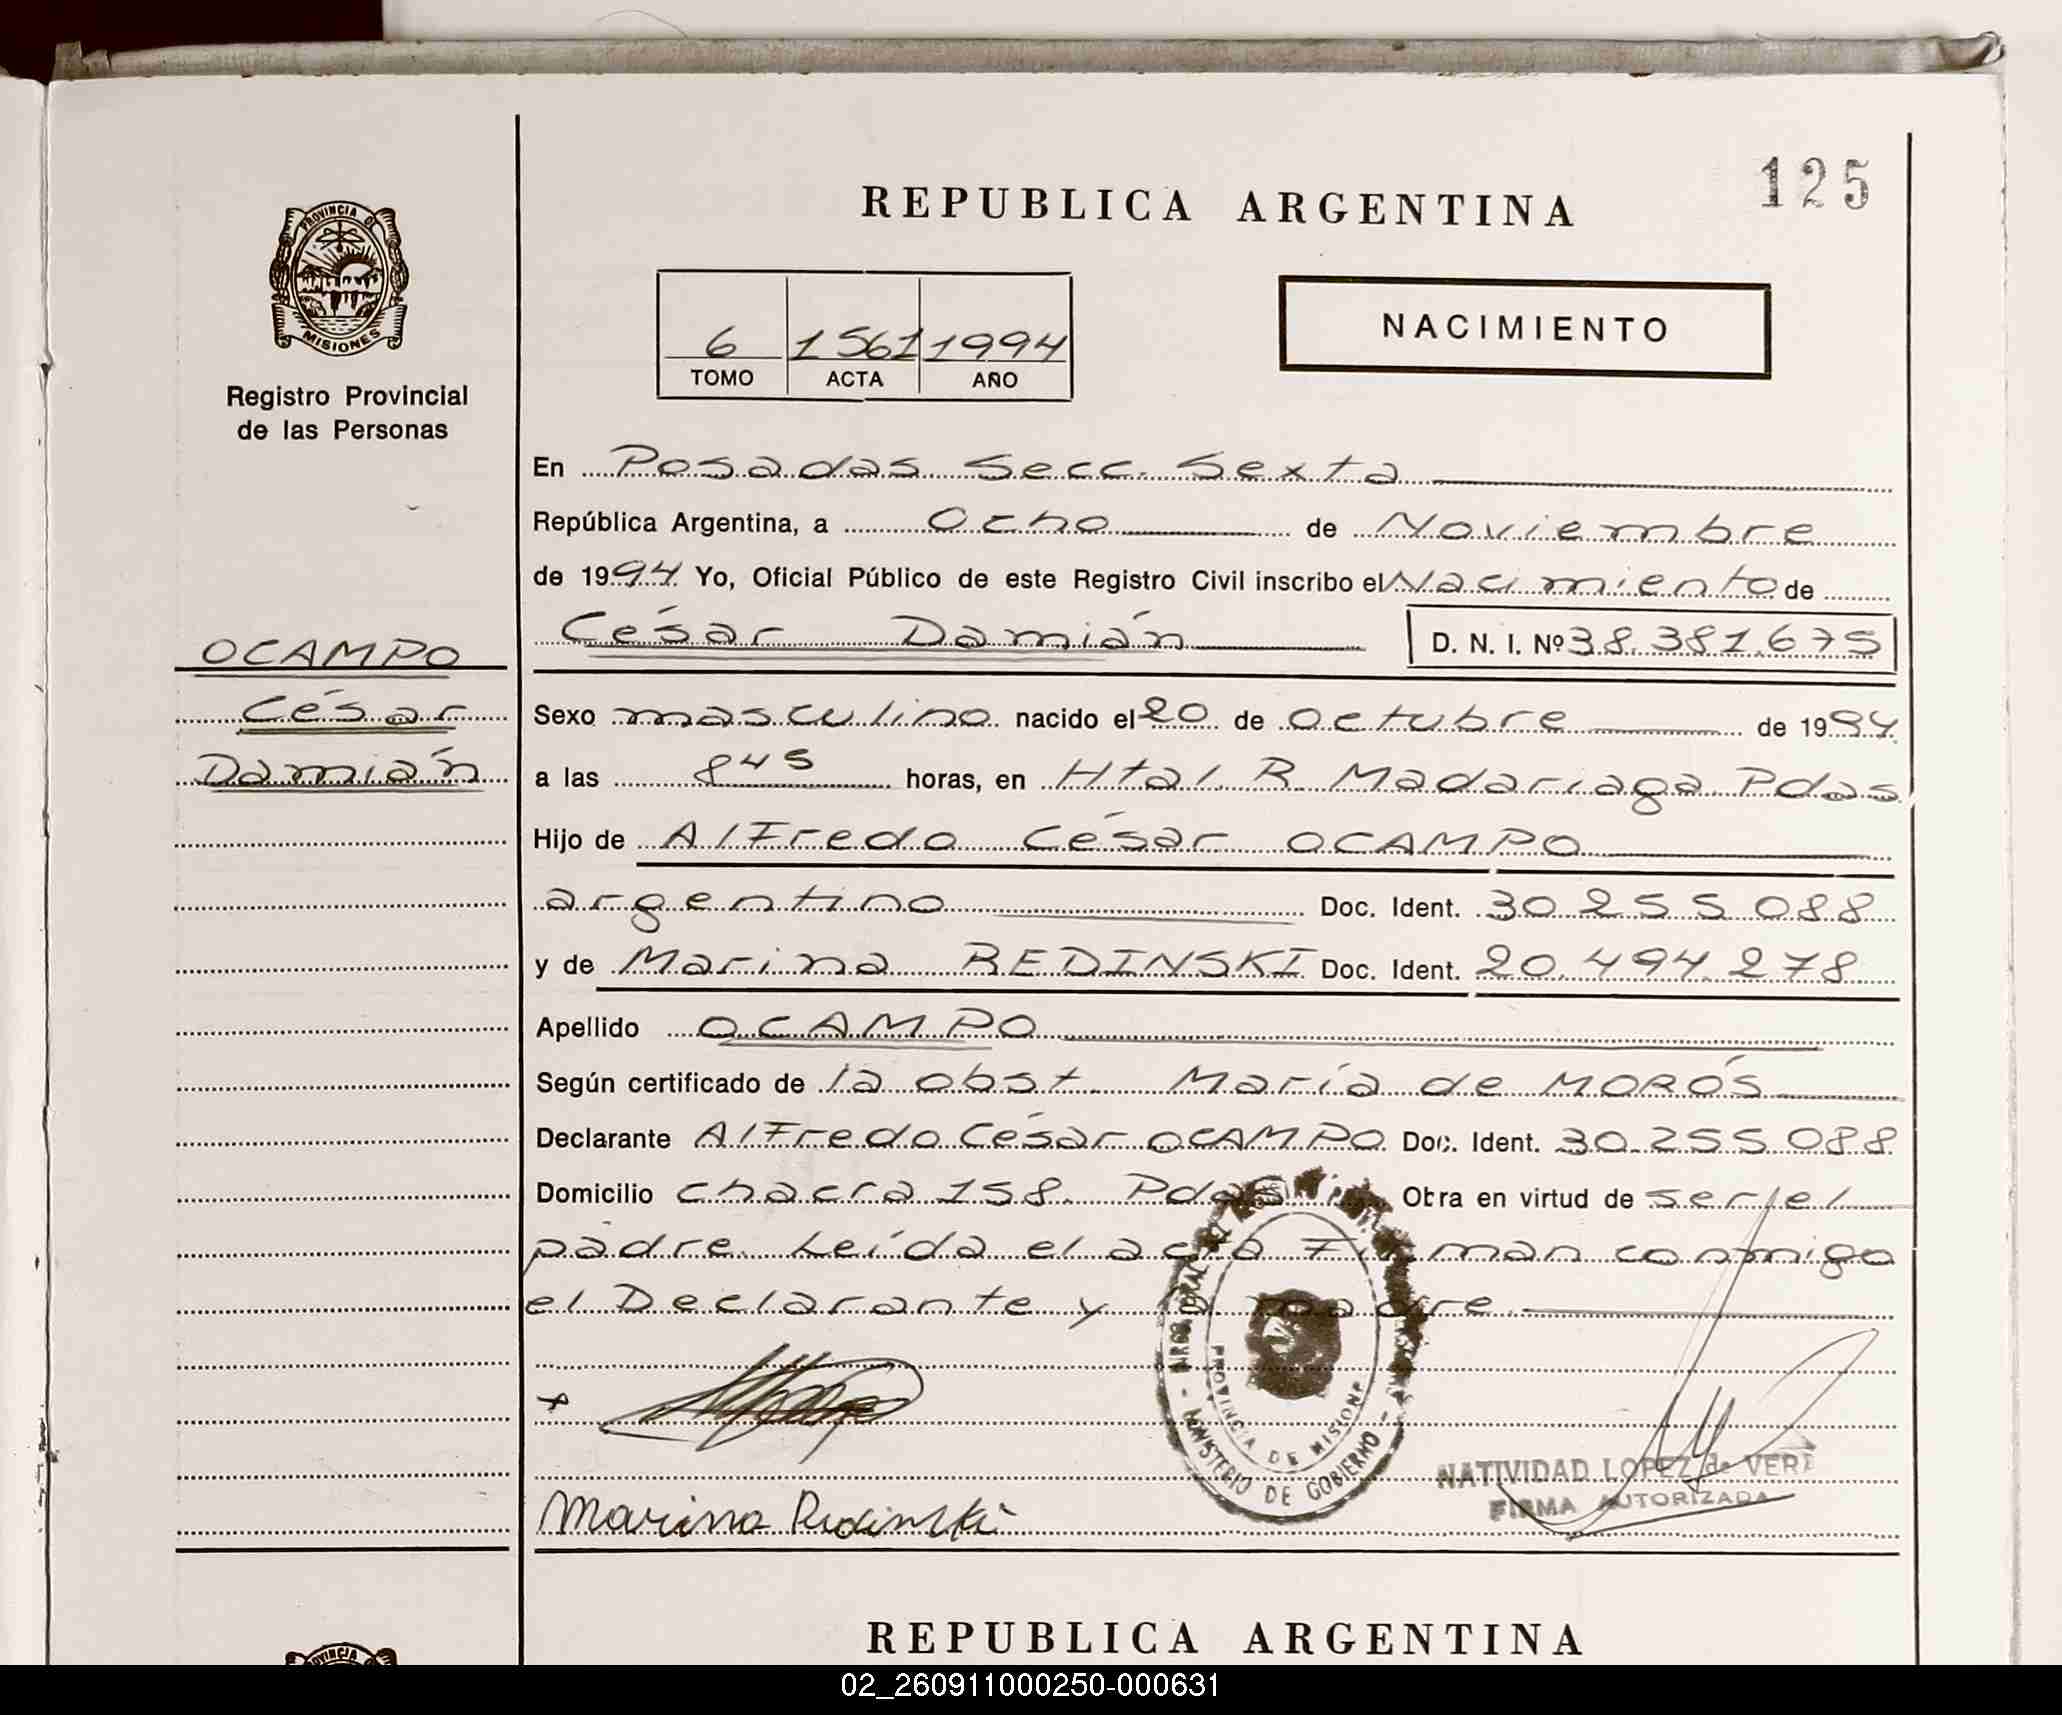 125
REPUBLICA ARGENTINA
PROVINCIA DE
MISIONES
Registro Provincial
de las Personas
6 1561 1994
TOMO ACTA AÑO
NACIMIENTO
En Posadas Secc. Sexta
República Argentina, a Ocho de Noviembre
de 1994 Yo, Oficial Público de este Registro Civil inscribo el Nacimiento de
César Damián D. N. I. Nº 38.381.675
OCAMPO
César
Damián
Sexo masculino nacido el 20 de octubre de 1994
a las 8 45 horas, en Htal. R. Madariaga Pdas
Hijo de Alfredo César OCAMPO
argentino Doc. Ident. 30.255.088
y de Marina REDINSKI Doc. Ident. 20.494.278
Apellido OCAMPO
Según certificado de la obst. María de MORÓS
Declarante Alfredo César OCAMPO Doc. Ident. 30.255.088
Domicilio chacra 158 Pdas Obra en virtud de ser el
padre. Leída el acta Firman conmigo
el Declarante y la madre
PROVINCIA DE MISIONES
MINISTERIO DE GOBIERNO
NATIVIDAD LOPEZ de VERA
FIRMA AUTORIZADA
Marina Redinski
REPUBLICA ARGENTINA
02_260911000250-000631